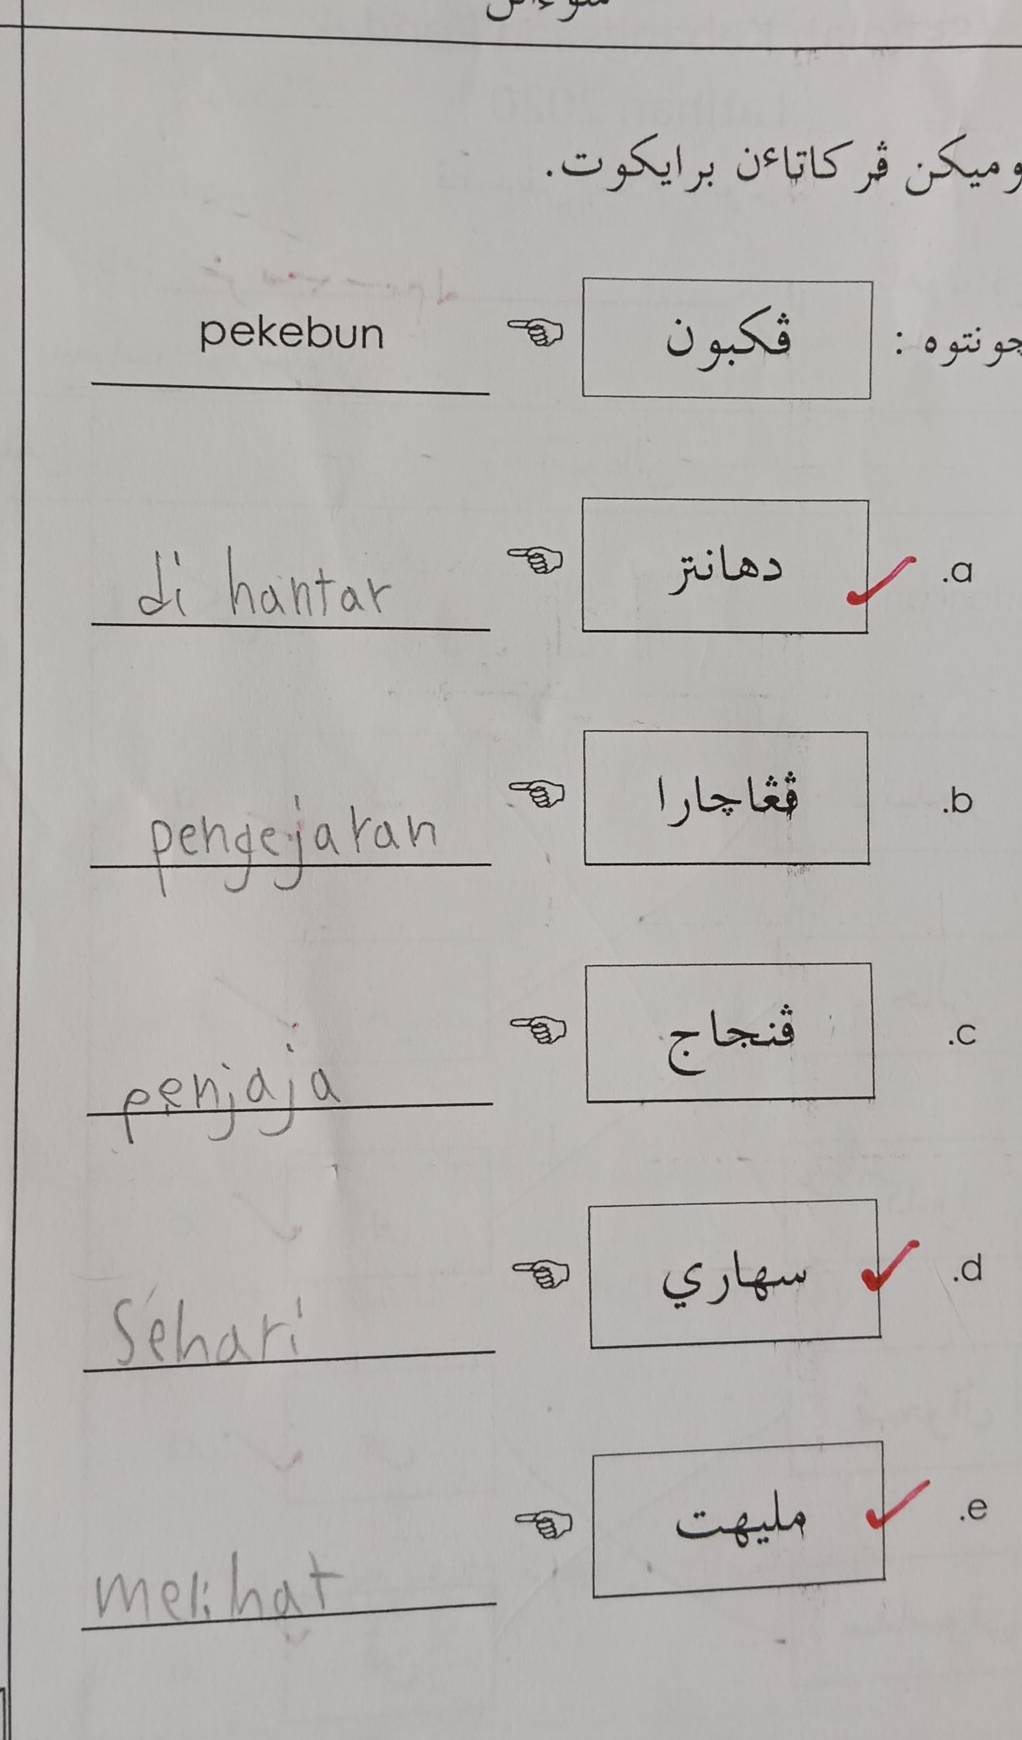 وميكن ڤركاتاءن برايكوت.
چونتوه : ڤكبون pekebun
a. دهانتر di hantar
b. ڤڠاچارا pengejaran
c. ڤنجاج penjaja
d. سهاري Sehari
e. مليهت melihat